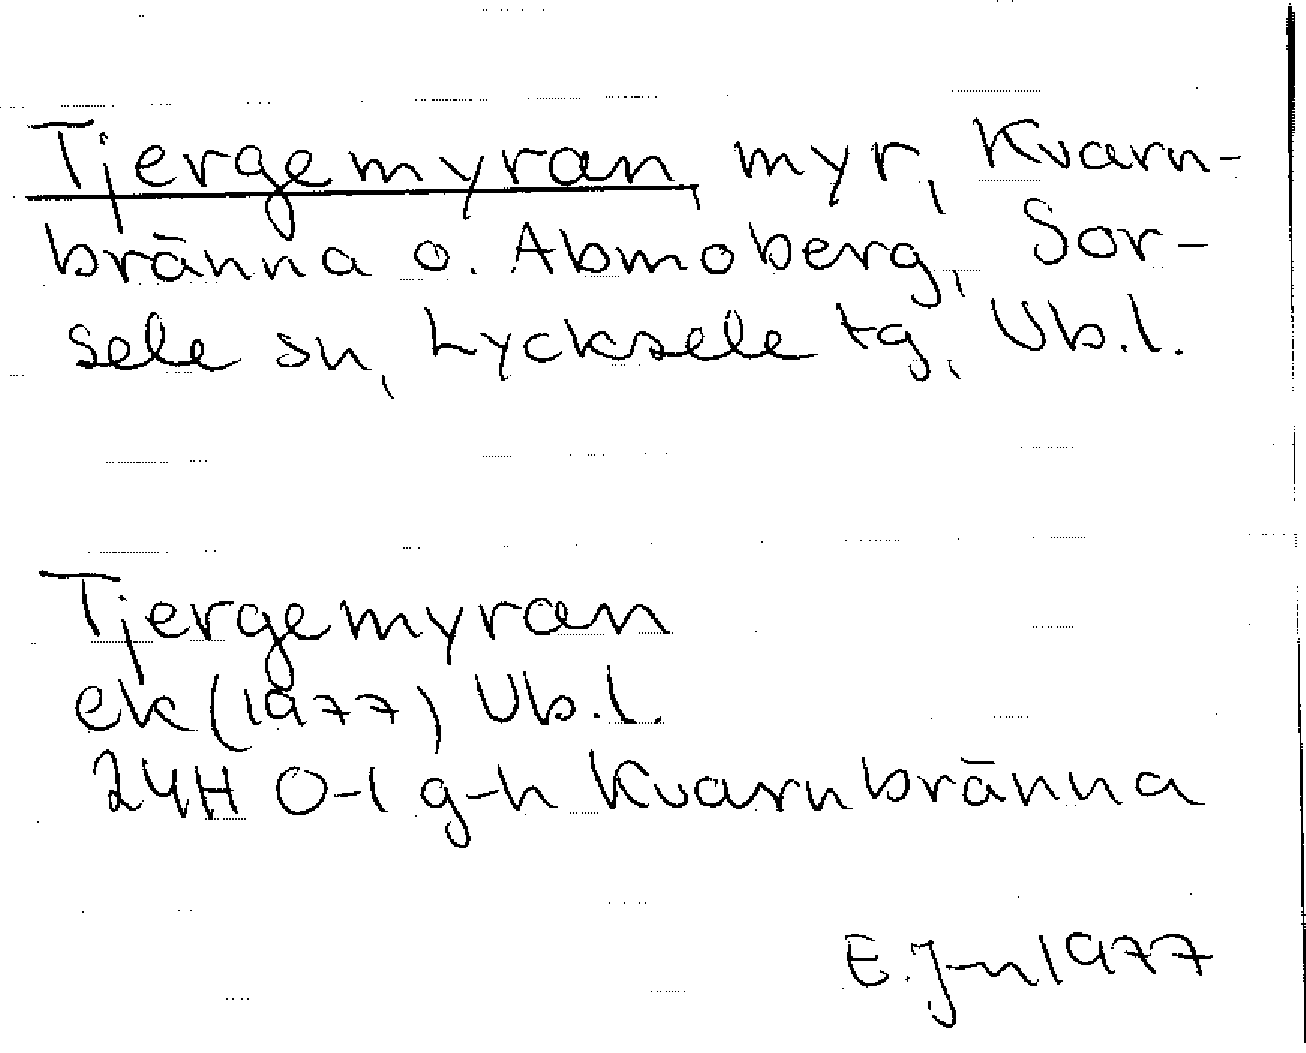 Tjergemyran, myr, Kvarn-
bränna o. Abmoberg, Sor-
sele sn, Lycksele tg, Vb.l.
Tjergemyran
ek (1977) Vb.l.
24H 0-1 g-h Kvarnbränna
E.J-n 1977